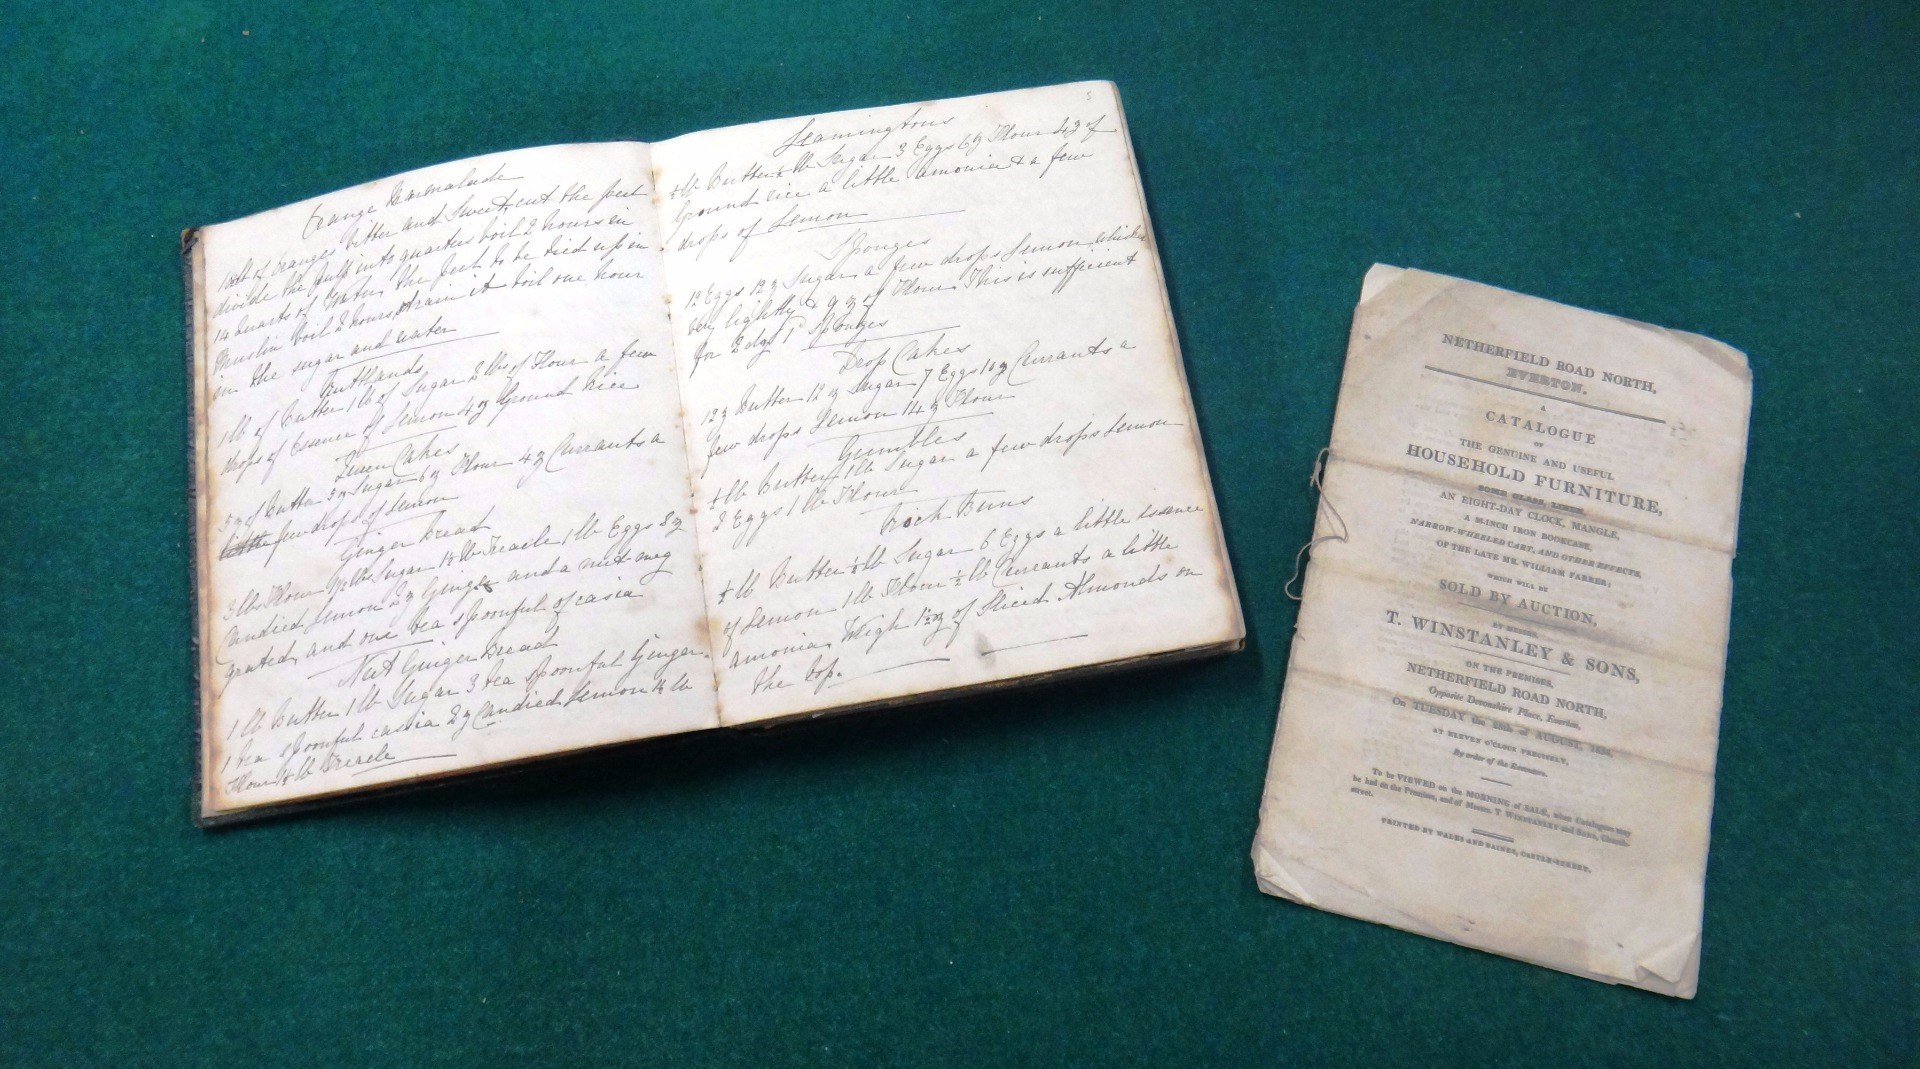 Orange Marmalade
of Oranges bitter and Sweet, cut the peel
divide the pulp into quarters boil 2 hours in
14 Quarts of Water, the peel to be tied up in
Muslin boil 2 hours, strain it boil one hour
in the sugar and water
Rutlands
1 lb of Butter 1 lb of Sugar 2 lbs of Flour a few
drops of Essence of Lemon 4 oz Ground Rice
Queen Cakes
5 oz of Butter 5 oz Sugar 6 oz Flour 4 oz Currants a
few drops of Lemon
Ginger Bread
3 lbs Flour 1½ lbs Sugar lb Treacle 1 lb Eggs 8 oz
Candied Lemon 2 oz Ginger and a nut meg
grated, and one tea spoonful of casia
Nut Ginger Bread
1 lb Butter 1 lb Sugar 3 tea spoonful Ginger
1 tea spoonful casia 2 oz Candied Lemon 4 lb
Flour lb Treacle
5
Leamingtons
lb Butter lb Sugar 3 Eggs 6 oz Flour 4 oz of
Ground rice a little amonia & a few
drops of Lemon
Sponges
12 Eggs 12 oz Sugar a few drops Lemon whisked
very lightly & 9 oz of Flour This is sufficient
for 2 doz 1d Sponges
Drop Cakes
12 oz Butter 12 oz Sugar 7 Eggs 10 oz Currants a
few drops Lemon 14 oz Flour
Gumbles
lb Butter 1 lb Sugar a few drops Lemon
3 Eggs 1 lb Flour
Rock Buns
lb Butter lb Sugar 6 Eggs a little essence
of Lemon 1 lb Flour ½ lb Currants a little
amonia, Weigh 1½ oz of Sliced Almonds on
the top.
NETHERFIELD ROAD NORTH,
EVERTON.
A
CATALOGUE
OF
THE GENUINE AND USEFUL
HOUSEHOLD FURNITURE,
SOME GLASS, LINEN,
AN EIGHT-DAY CLOCK, MANGLE,
A IRON BOOKCASE,
NARROW-WHEELED CART, AND OTHER EFFECTS,
OF THE LATE MR. WILLIAM PARKER;
WHICH WILL BE
SOLD BY AUCTION,
BY MESSRS.
T. WINSTANLEY & SONS,
ON THE PREMISES,
NETHERFIELD ROAD NORTH,
Opposite Devonshire Place, Everton.
On TUESDAY the of AUGUST,
AT ELEVEN O'CLOCK PRECISELY,
By order of the Executors.
To be VIEWED on the MORNING of SALE, when Catalogues may
be had on the Premises, and of Messrs. T. WINSTANLEY and SONS, Church-
street.
PRINTED BY WALES AND BAINES, CASTLE-STREET.